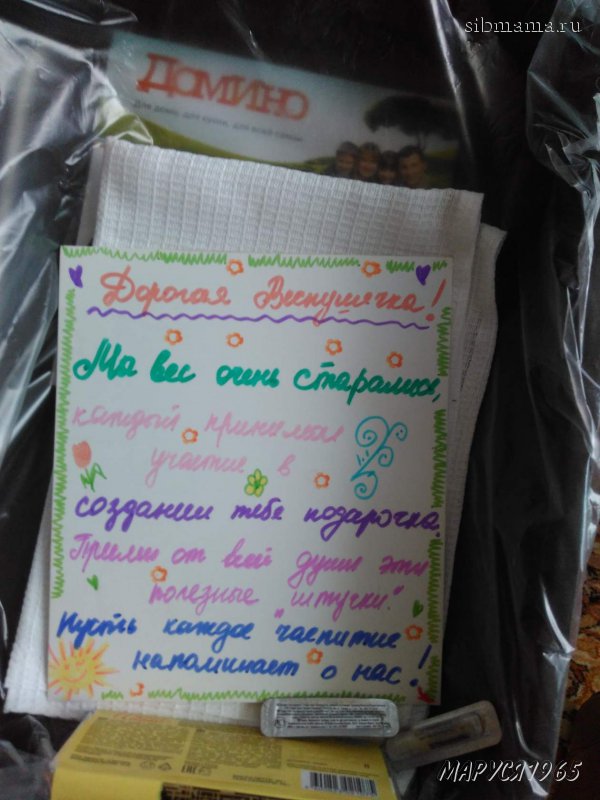 sibmama.ru
Домино
Для дома, для кухни, для всей семьи
Дорогая Веснушечка!
Мы все очень старались,
каждый принимал
участие в
создании тебе подарочка.
Прими от всей души эти
полезные "штучки".
Пусть каждое чаепитие
напоминает о нас!
МАРУСЯ1965